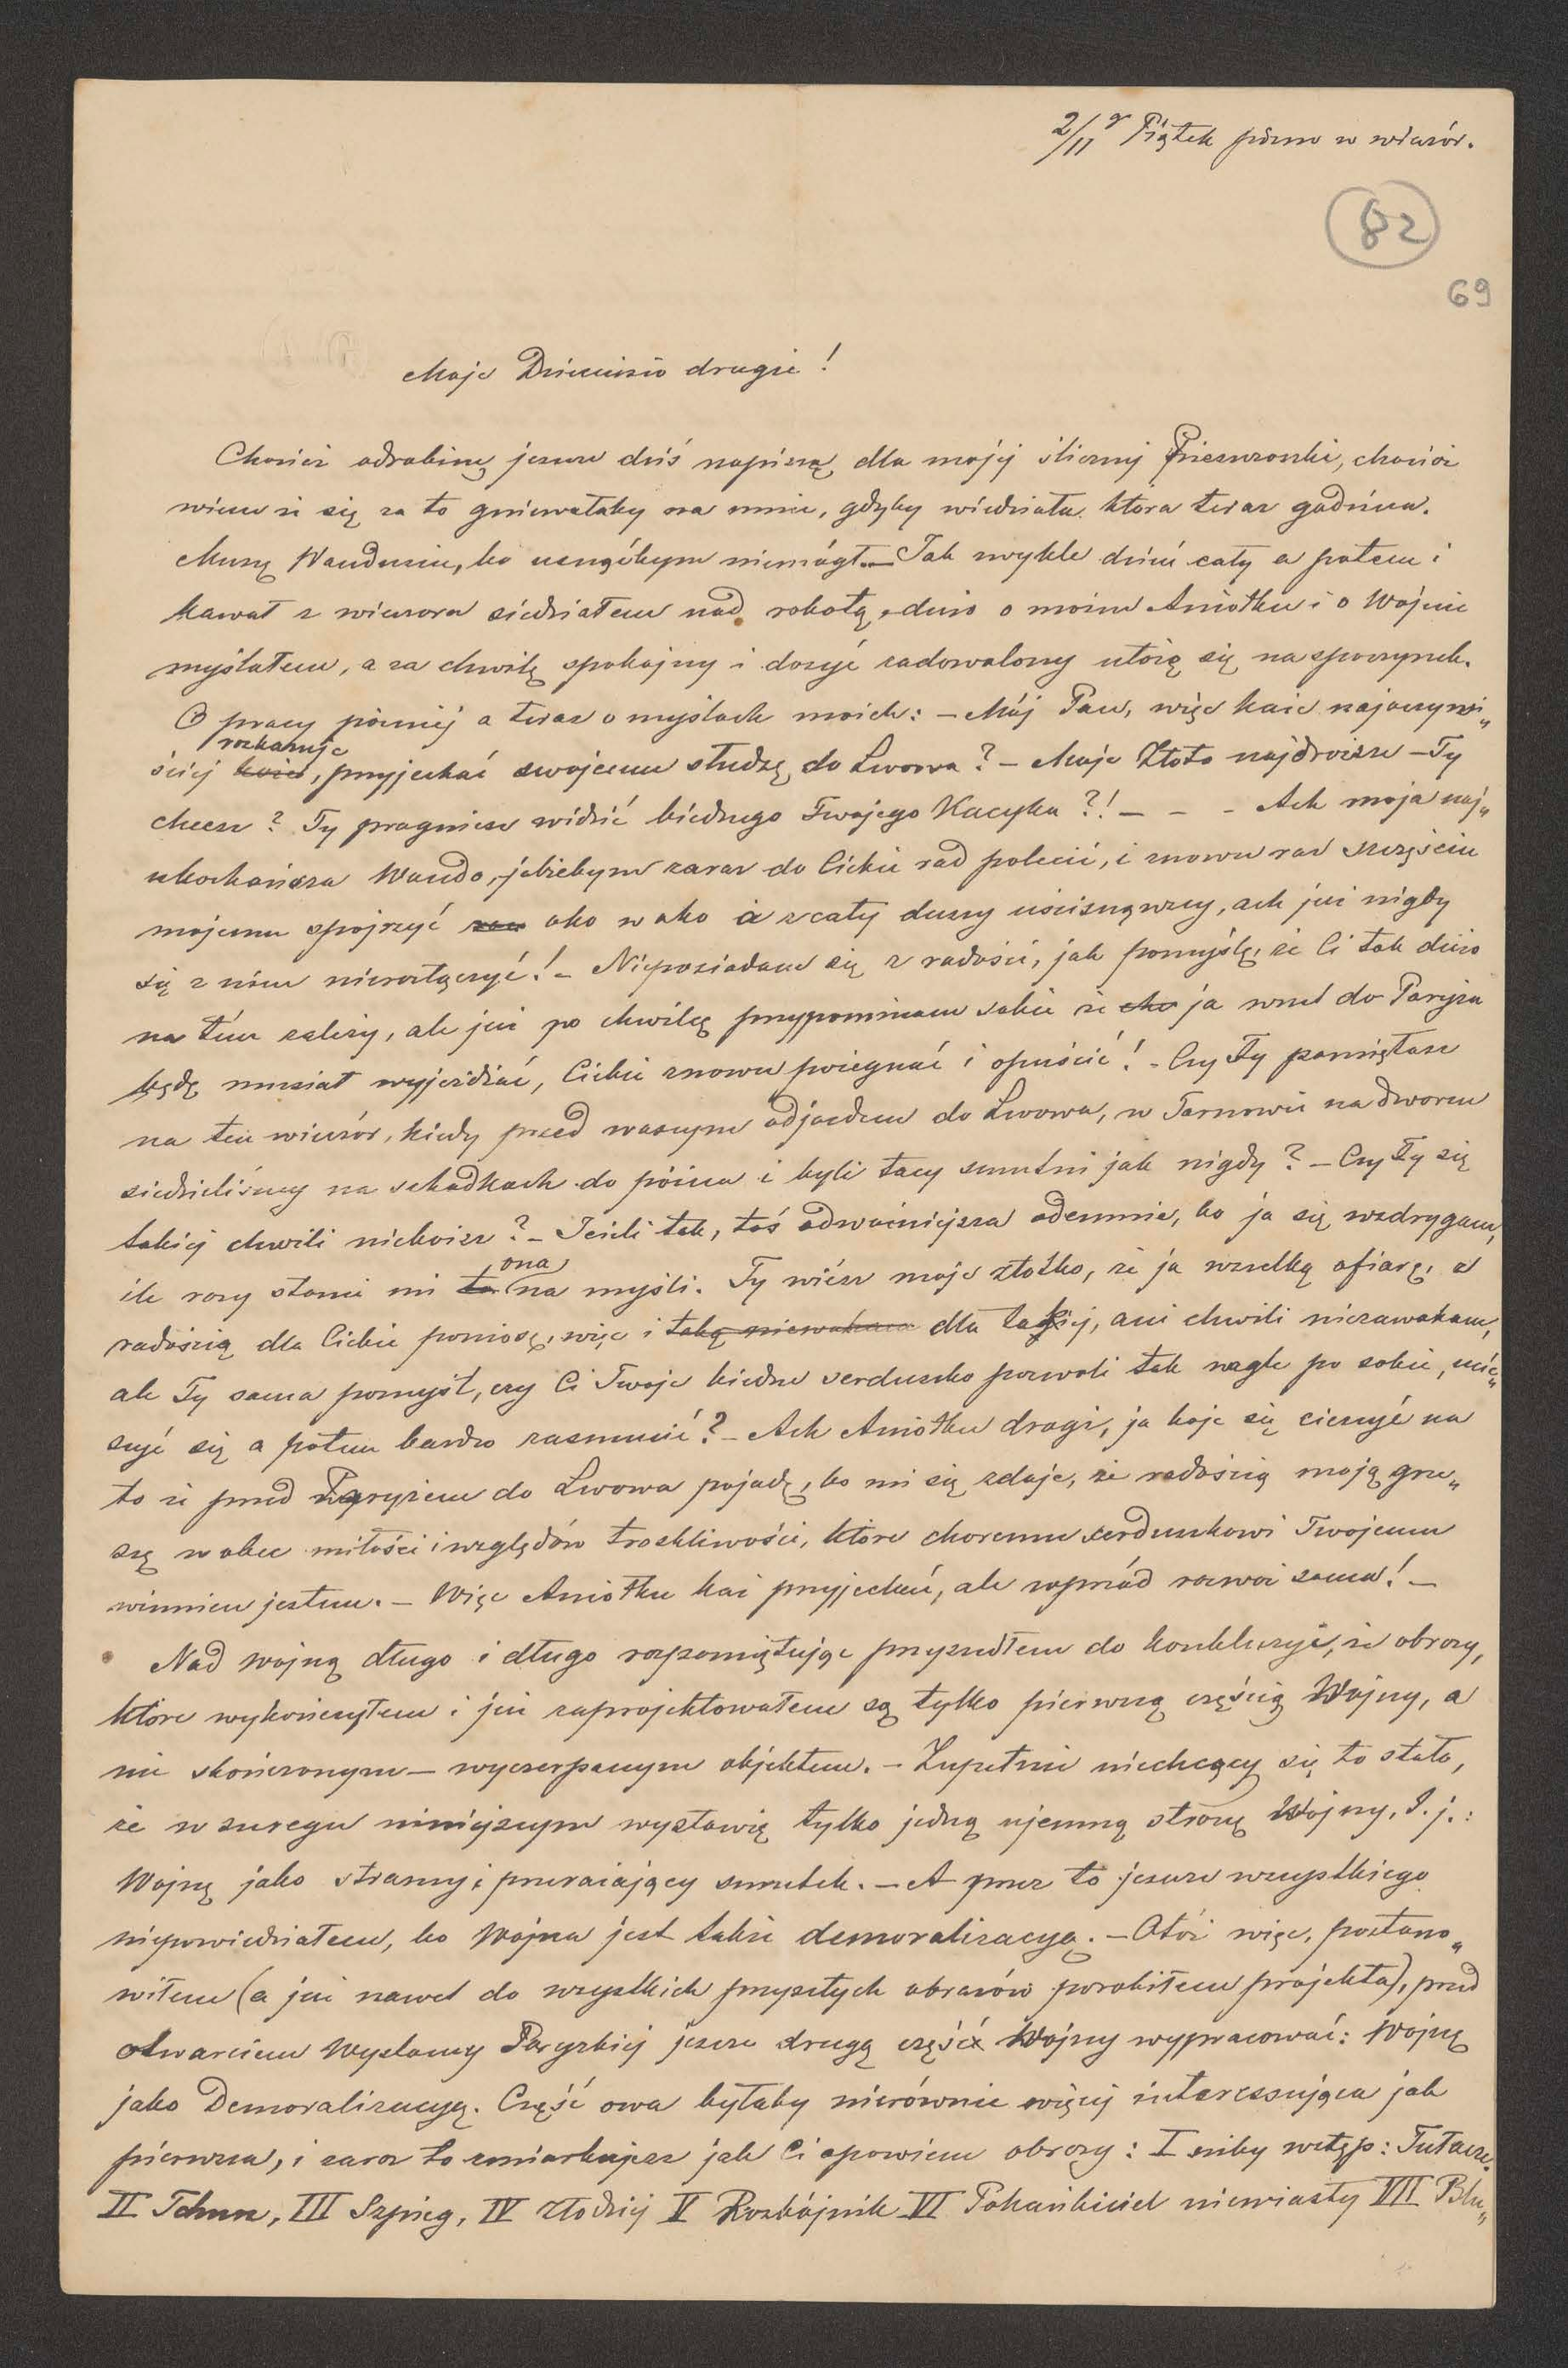 2/11 r Piątek późno w wieczór.
82
69
Moje Dzieciusio drugie!
Chociaż odrobinę jeszcze dziś napiszę dla mojej ślicznej Pieszczoszki, chociaż
wiem że się za to gniewałaby na mnie, gdyby wiedziała która teraz godzina.
Muszę Wandusiu, bo usnąćbym niemógł. — Jak zwykle dzień cały a potem i
kawał z wieczora siedziałem nad robotą, dużo o moim Aniołku i o Wojnie
myślałem, a za chwilę spokojny i dosyć zadowolony ułożę się na spoczynek.
O pracy później a teraz o myślach moich: — Mój Pan, więc każe najoczywi„
ściej każe rozkazuje, przyjechać swojemu słudze do Lwowa? — Moje Złoto najdroższe — Ty
chcesz? Ty pragniesz widzieć biednego Twojego Kacyka?! — — — Ach moja naj„
ukochańsza Wando, jakżebym zaraz do Ciebie rad polecieć, i znowu raz szczęściu
mojemu spojrzyć oko w oko i z całej duszy uścisnąwszy, ach już nigdy
się z niem nierozłączyć! — Nieposiadam się z radości, jak pomyślę, że Ci tak dużo
na tem zależy, ale już po chwilę przypominam sobie że ja wnet do Paryża
będę musiał wyjeżdżać, Ciebie znowu pożegnać i opuścić! — Czy Ty pamiętasz
na ten wieczór, kiedy przed waszym odjazdem do Lwowa, w Tarnowie na dworcu
siedzieliśmy na schodkach do późna i byli tacy smutni jak nigdy? — Czy Ty się
takiej chwili nieboisz? — Jeżeli tak, toś odważniejsza odemnie, bo ja się wzdrygam,
ile razy stanie mi ta ona na myśli. Ty wiesz moje złotko, że ja wszelką ofiarę, z
radością dla Ciebie poniosę, więc i taką niewaham dla takiej, ani chwili niezawaham,
ale Ty sama pomyśl, czy Ci Twoje biedne serduszko pozwoli tak nagle po sobie, ucie„
szyć się a potem bardzo zasmucić? — Ach Aniołku drogi, ja boje się cieszyć na
to że przed Paryżem do Lwowa pojadę, bo mi się zdaje, że radością moją grze„
szę wobec miłości i względów troskliwości, które choremu serduszkowi Twojemu
winnien jestem. — Więc Aniołku każ przyjechać, ale wprzód rozważ sama! —
Nad wojną długo i długo rozpamiętując przyszedłem do konkluzyi, że obrazy,
które wykończyłem i już zaprojektowałem są tylko pierwszą częścią Wojny, a
nie skończonym — wyczerpanym objektem. — Zupełnie niechcący się to stało,
że w szeregu niniejszym wystawię tylko jedną ujemną stronę Wojny, t. j.:
Wojnę jako straszny i przerażający smutek. — A przez to jeszcze wszystkiego
niepowiedziałem, bo Wojna jest także demoralizacyą. — Otóż więc, postano„
wiłem (a już nawet do wszystkich przyszłych obrazów porobiłem projekta), przed
otwarciem Wystawy Paryzkiej jeszcze drugą część Wojny wypracować: Wojnę
jako Demoralizacyą. Część owa byłaby nierównie więcej interessująca jak
pierwsza, i zaraz to zmiarkujesz jak Ci opowiem obrazy: I niby wstęp: Tułacze.
II Tchurz, III Szpieg, IV złodziej V Rozbójnik VI Pohańbiciel niewiasty VII Blu„